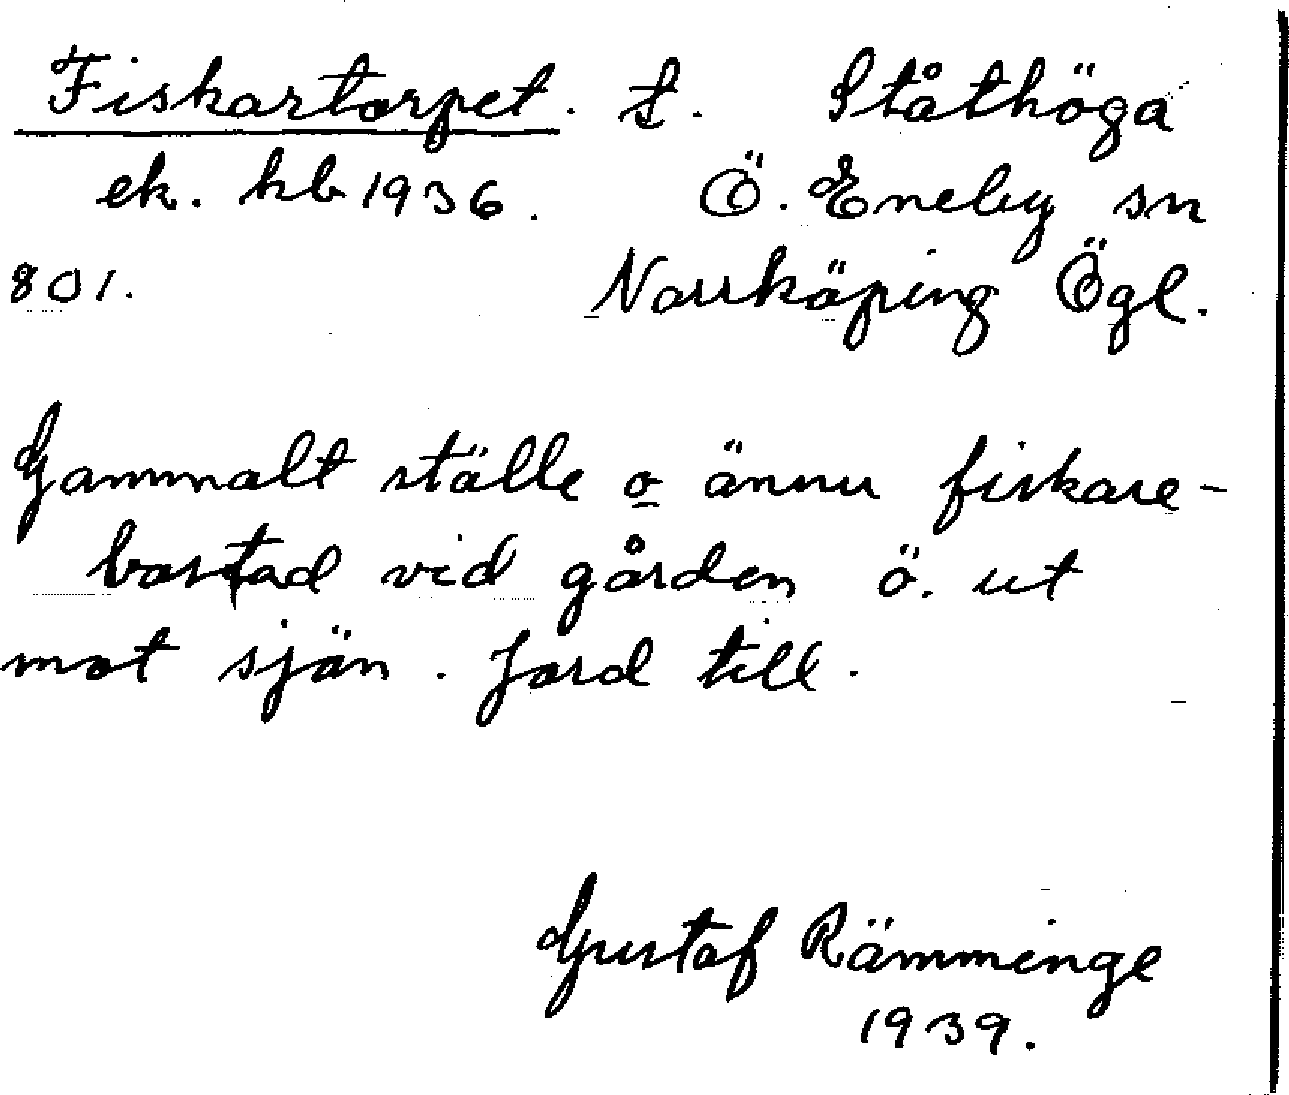 Fiskartorpet. t. Ståthöga
ek. kb 1936. Ö. Eneby sn
801. Norrköping Ögl.
Gammalt ställe o ännu fiskare-
bostad vid gården ö. ut
mot sjön. Jord till.
Gustaf Rämminge
1939.